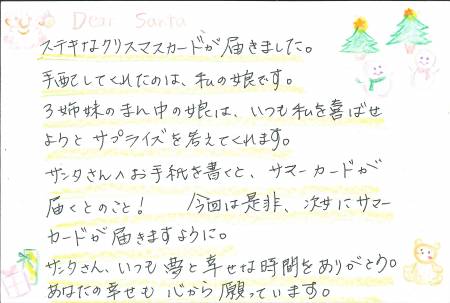 Dear Santa
ステキなクリスマスカードが届きました。
手配してくれたのは、私の娘です。
3姉妹のまん中の娘は、いつも私を喜ばせ
ようとサプライズを考えてくれます。
サンタさんへお手紙を書くと、サマーカードが
届くとのこと! 今回は是非、次女にサマー
カードが届きますように。
サンタさん、いつも夢と幸せな時間をありがとう。
あなたの幸せも心から願っています。